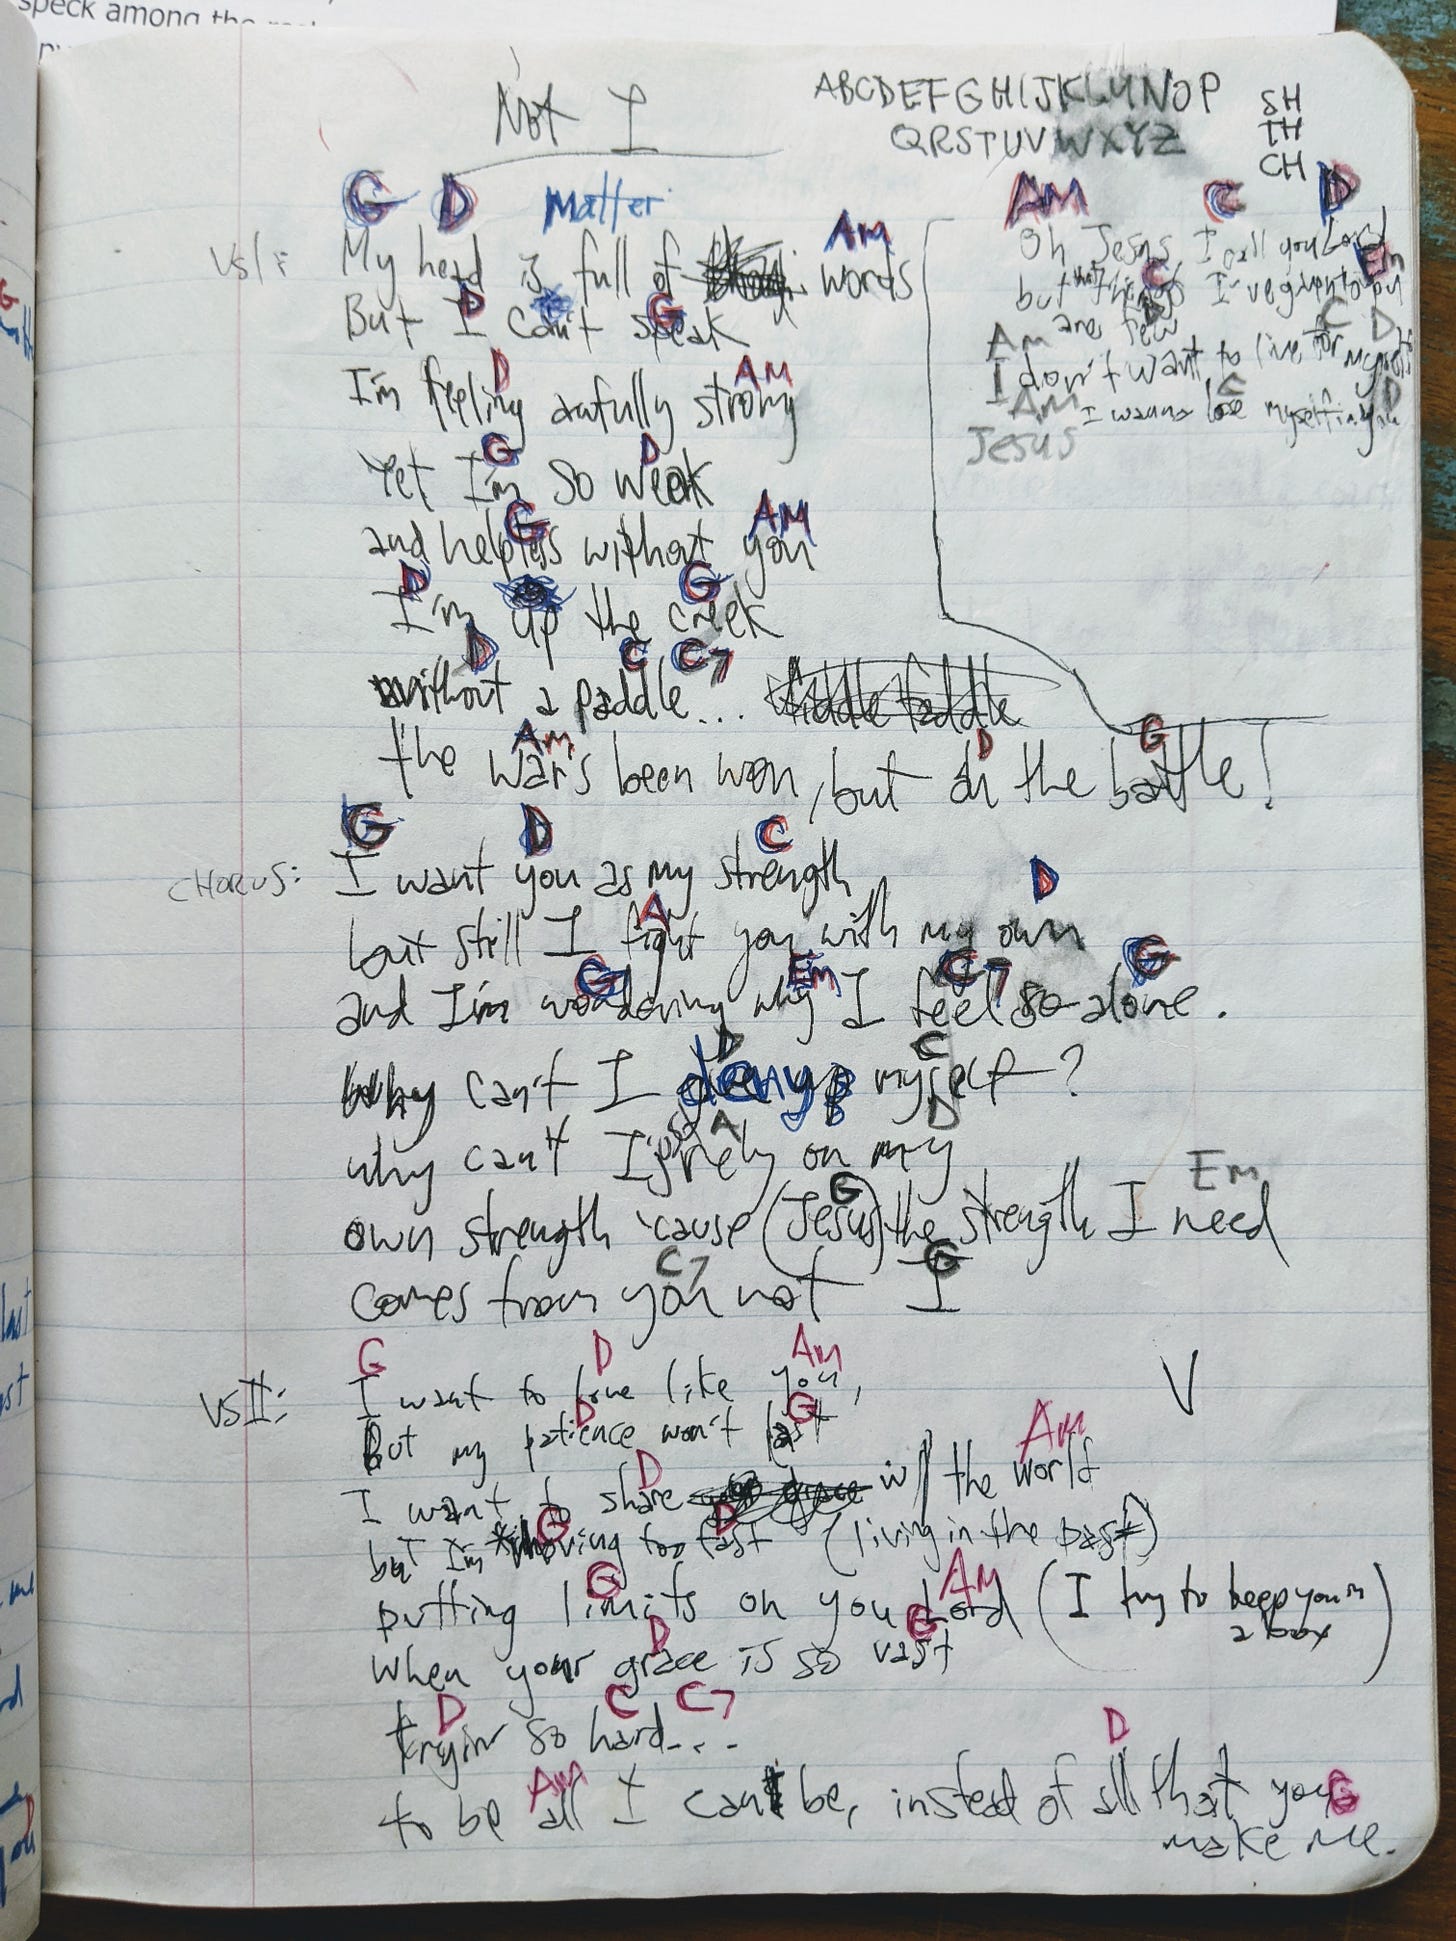 speck among the
Not I
ABCDEFGHIJKLMNOP
QRSTUVWXYZ
SH
TH
CH
G D Matter Am
Vs I: My head is full of words
D G
But I can't speak
D Am
I'm feeling awfully strong
G D
Yet I'm so weak
G Am
and helpless without you
D G
I'm up the creek
D C C7
without a paddle...
Am D G
the war's been won, but oh the battle!
Am C D
Oh Jesus, I call you Lord
C Em
but the things I've given to you
D C D
are few
Am
I don't want to live for myself
Am C D
I wanna lose myself in you
Jesus
G D C
CHORUS: I want you as my strength
A D
but still I fight you with my own
G Em C7 G
and I'm wondering why I feel so alone.
D C
why can't I deny myself?
A D
why can't I just rely on my
G Em
own strength 'cause (Jesus) the strength I need
C7 G
comes from you not I
V
G D Am
VS II: I want to love like you,
D G
But my patience won't last
D Am
I want to share w/ the world
G D
but I'm *moving too fast (living in the past)
G Am
putting limits on you Lord (I try to keep you in a box)
D G
when your grace is so vast
D C C7
tryin so hard...
Am D G
to be all I can be, instead of all that you
make me.